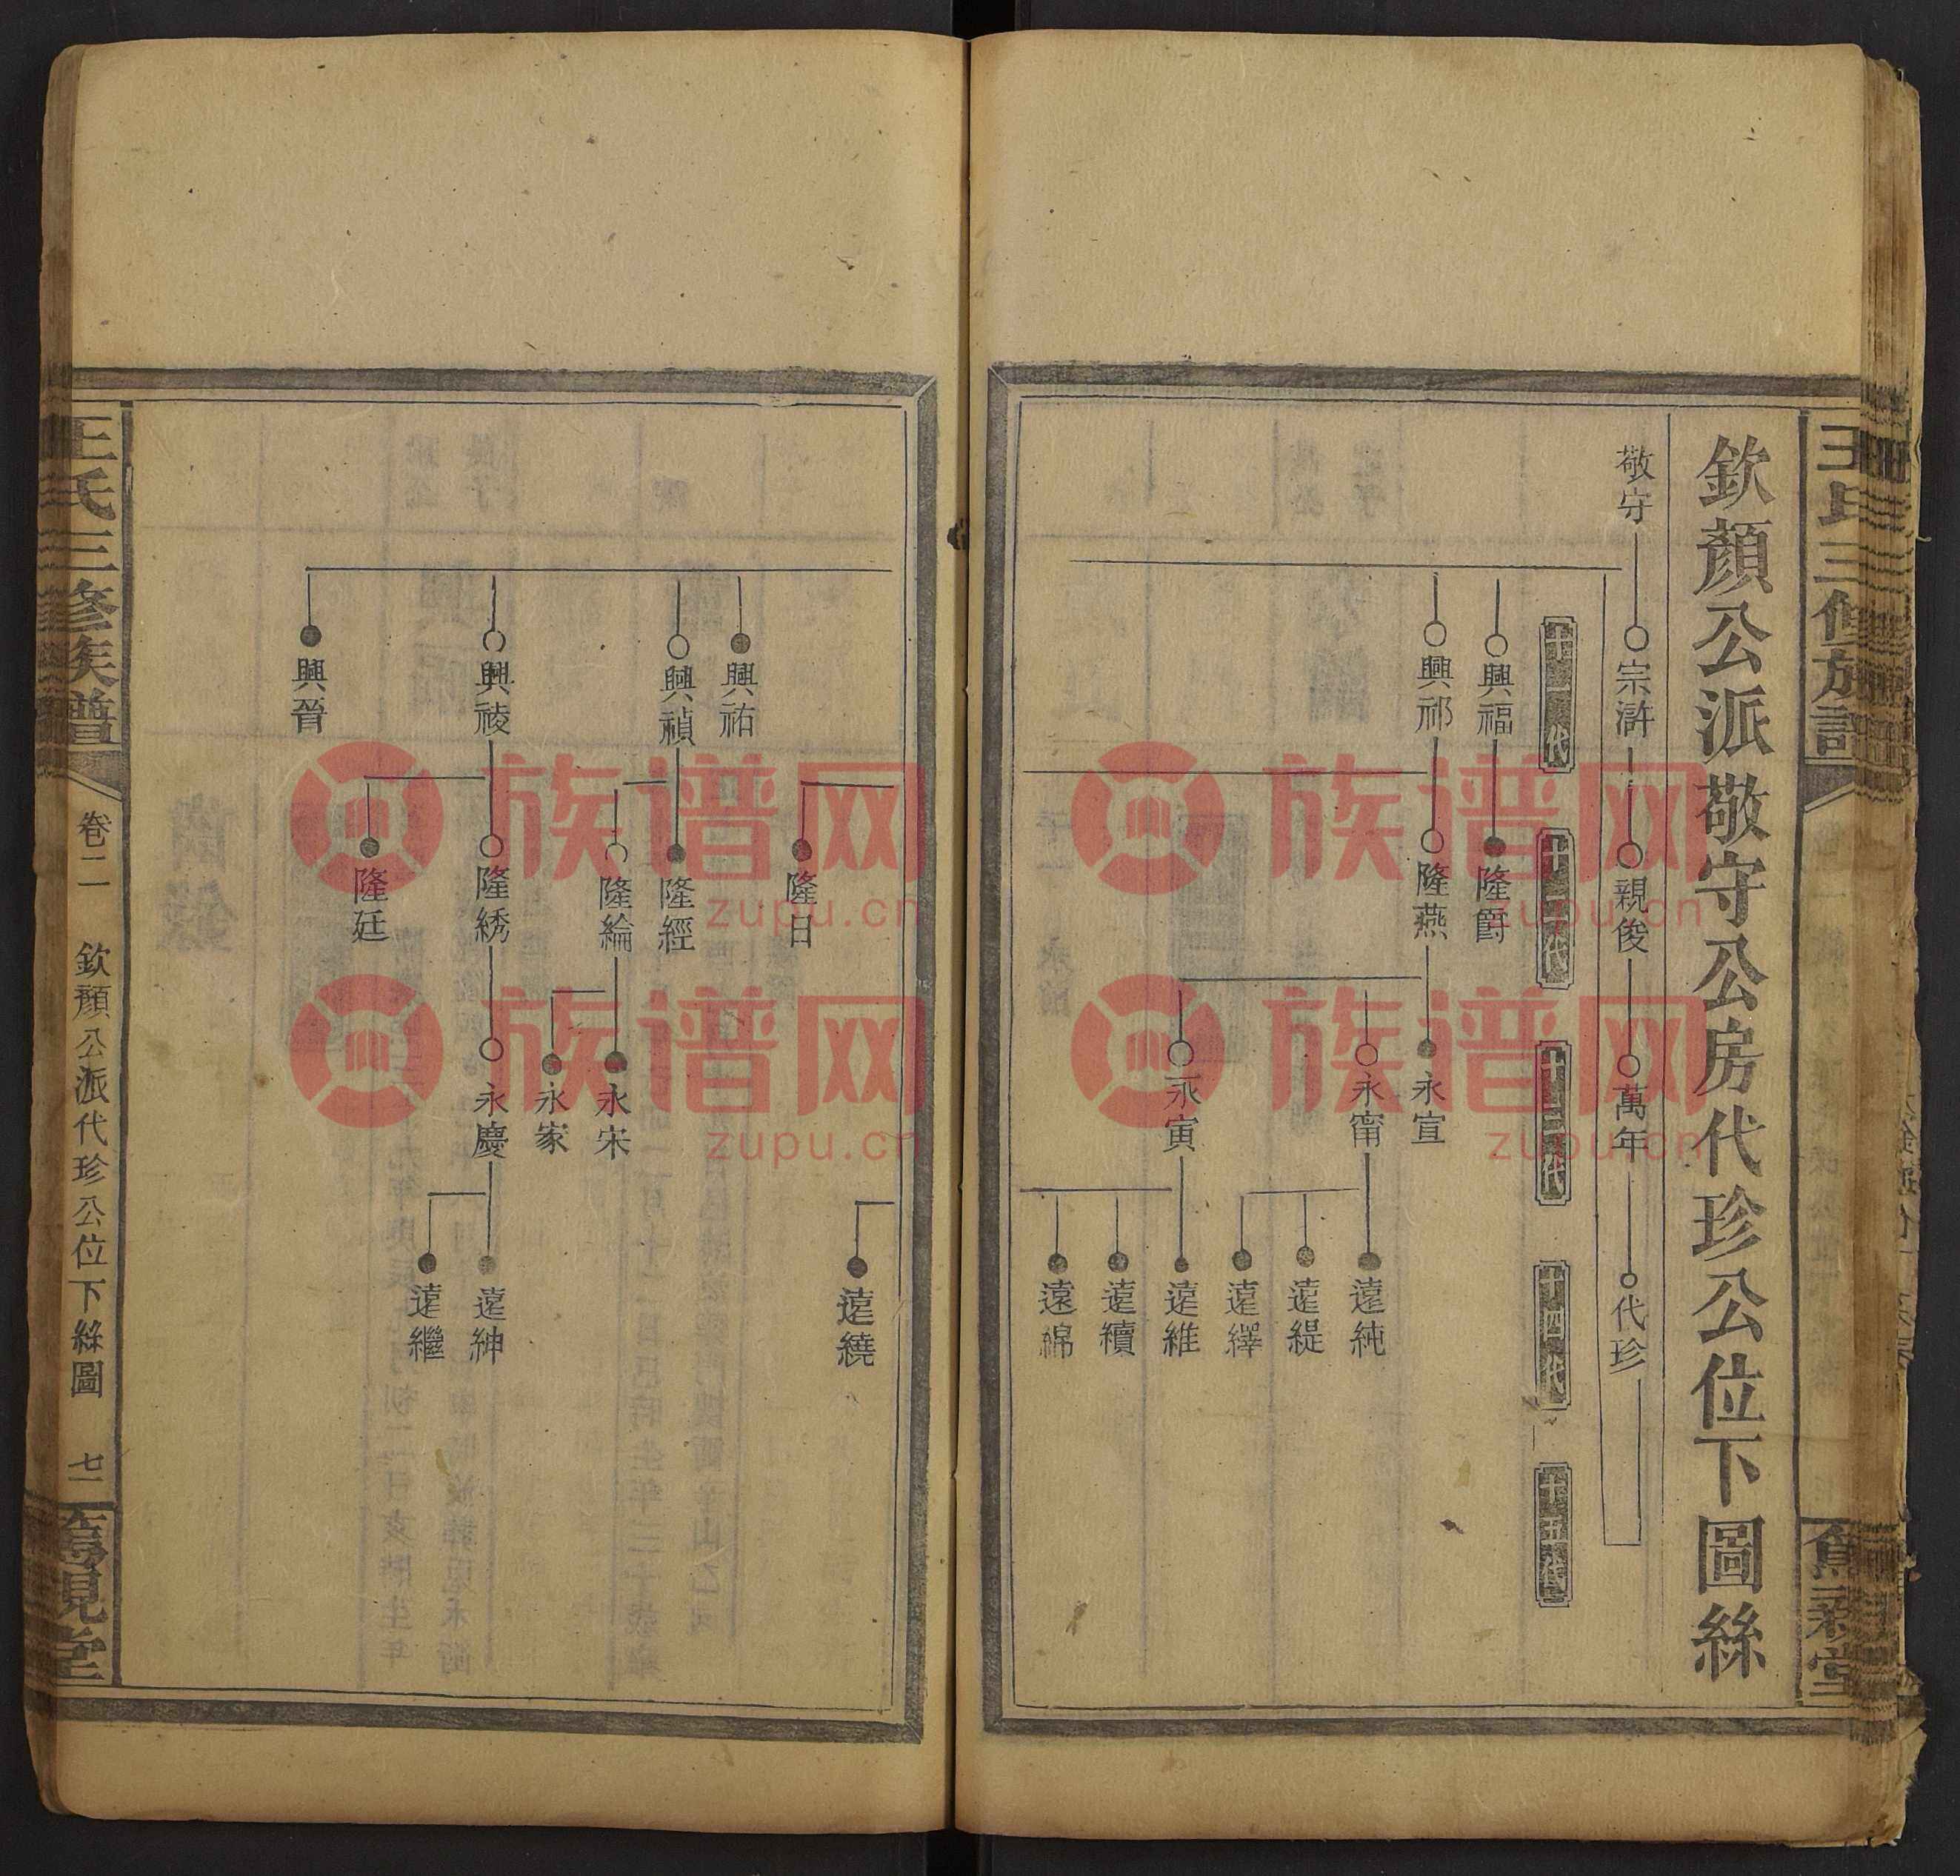 欽顏公派敬守公房代珍公位下圖絲
敬守
宗滸
親俊
萬年
代珍
十一代
十二代
十三代
十四代
十五代
興福
隆爵
興祁
隆燕
永宣
永甯
遠純
遠緹
遠繹
永寅
遠維
遠續
遠綿
遠繞
隆日
興祐
興禎
隆經
隆綸
永宋
永家
興祾
隆綉
永慶
遠紳
遠繼
隆廷
興晉
王氏三修族譜
卷二
欽顏公派代珍公位下絲圖
七一
王氏三修族譜
族谱网
zupu.cn
族谱网
zupu.cn
族谱网
zupu.cn
族谱网
zupu.cn